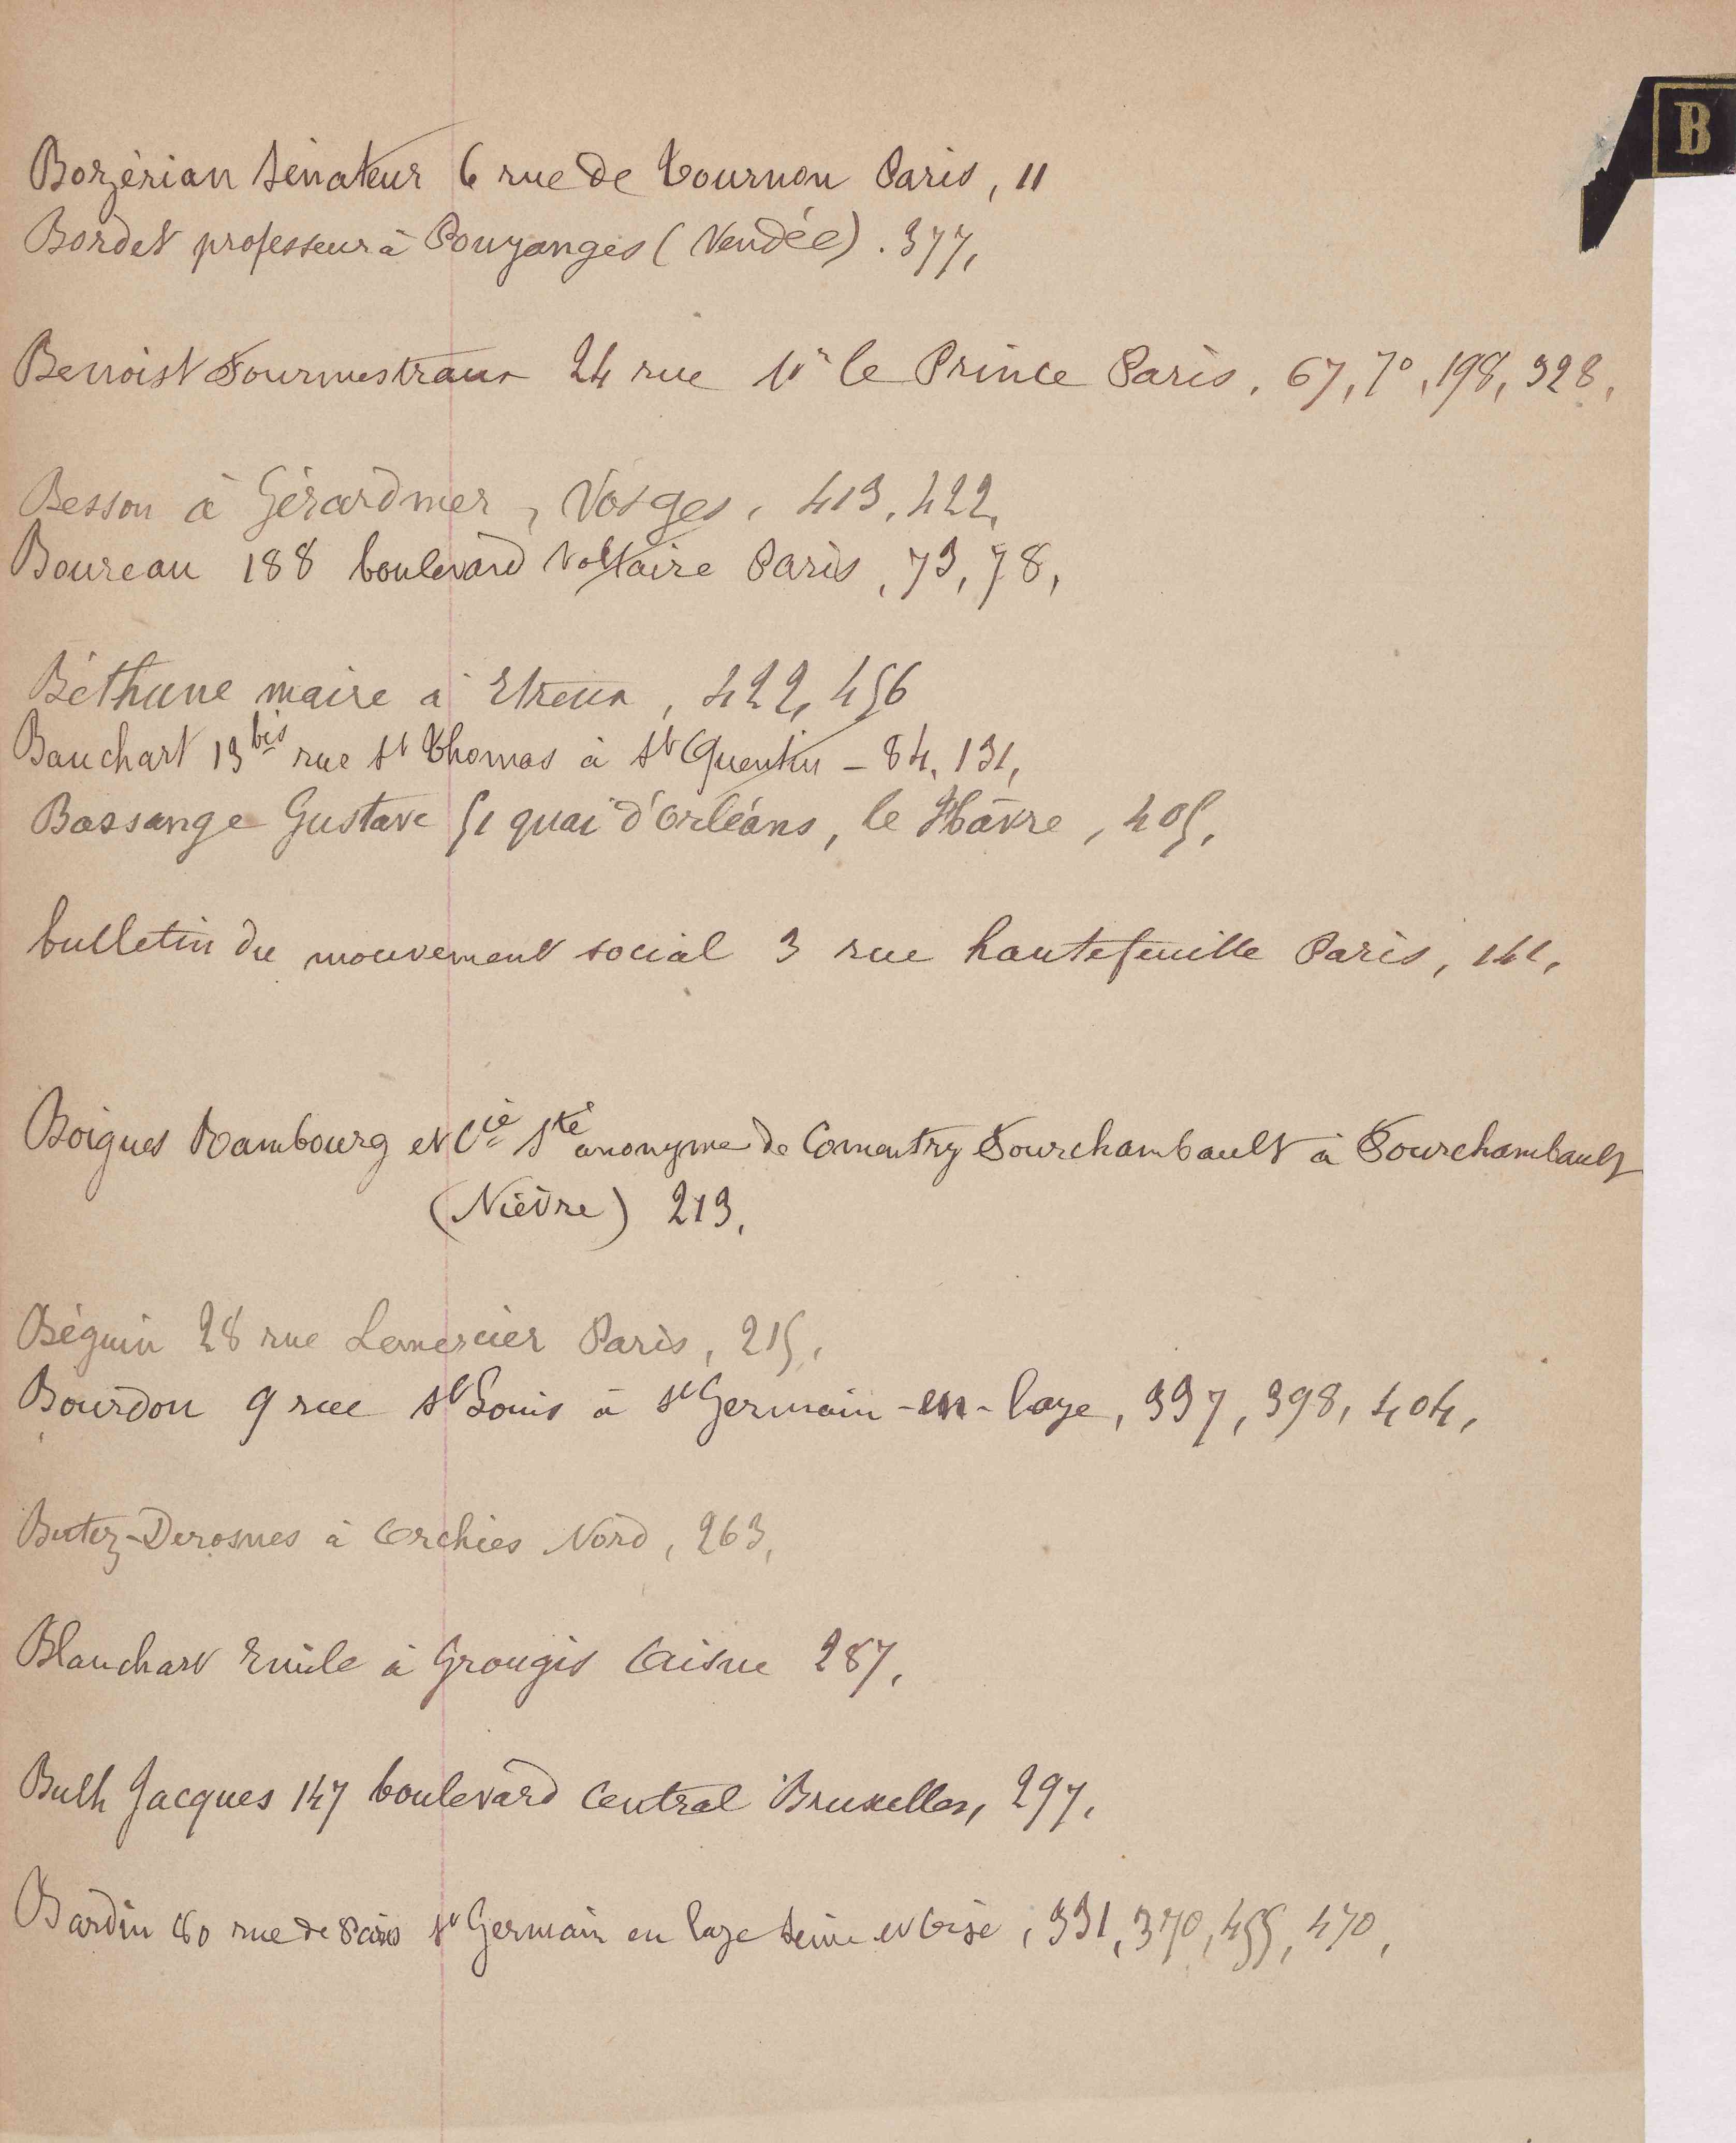 B
Borzérian Sénateur 6 rue de Tournon Paris, 11
Bordet professeur à Pouzanges (Vendée). 377,
Benoist Fourmestraux 24 rue Mr le Prince Paris. 67, 70, 198, 328,
Besson à Gérardmer, Vosges, 413, 422,
Boureau 188 boulevard Voltaire Paris, 73, 78,
Béthune maire à Etreux, 422, 456
Bauchart 13 bis rue St Thomas à St Quentin - 84, 131,
Bossange Gustave 51 quai d'Orléans, le Hâvre, 405,
bulletin du mouvement social 3 rue hautefeuille Paris, 141,
Boigues Rambourg et Cie Sté anonyme de Comentry Fourchambault à Fourchambault
(Nièvre) 213,
Béguin 28 rue Lemercier Paris, 215,
Bourdon 9 rue St Louis à St Germain-en-laye, 337, 398, 404,
Butez-Derosnes à Orchies Nord, 263,
Blanchart Emile à Grougis Aisne 287,
Bulh Jacques 147 boulevard Central Bruxelles, 297,
Bardin 80 rue de Paris St Germain en laye Seine et Oise, 331, 370, 455, 470,